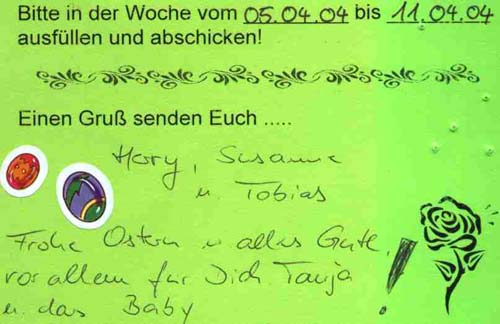 Bitte in der Woche vom 05.04.04 bis 11.04.04
ausfüllen und abschicken!
Einen Gruß senden Euch .....
Hary, Susanne
u. Tobias
Frohe Ostern u alles Gute,
vor allem für Dich Tanja !
u. das Baby